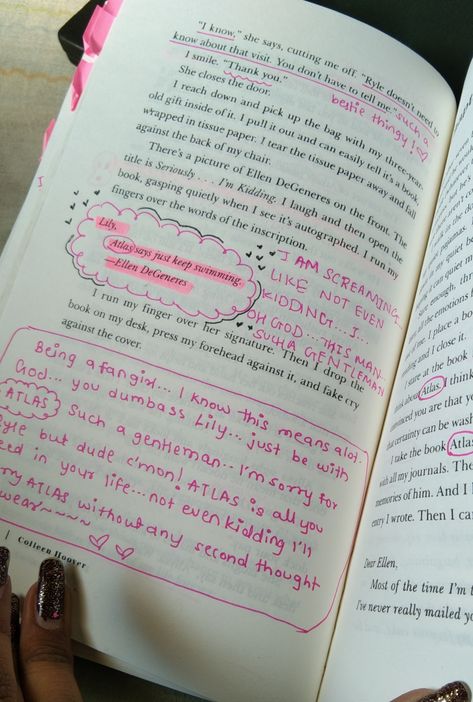 "I know," she says, cutting me off. "Ryle doesn't need to
know about that visit. You don't have to tell me."
such a
bestie thingy!
I smile. "Thank you."
She closes the door.
I reach down and pick up the bag with my three-year-
old gift inside of it. I pull it out and can easily tell it's a book,
wrapped in tissue paper. I tear the tissue paper away and fall
against the back of my chair.
There's a picture of Ellen DeGeneres on the front. The
title is Seriously . . . I'm Kidding. I laugh and then open the
book, gasping quietly when I see it's autographed. I run my
fingers over the words of the inscription.
Lily,
Atlas says just keep swimming.
—Ellen DeGeneres
I AM SCREAMING...
LIKE NOT EVEN
KIDDING... I...
OH GOD... THIS MAN..
SUCH A GENTLEMAN
I run my finger over her signature. Then I drop the
book on my desk, press my forehead against it, and fake cry
against the cover.
Being a fangirl... I know this means alot..
God... you dumbass Lily... just be with
ATLAS Such a gentleman... I'm sorry for
but dude c'mon! ATLAS is all you
in your life... not even kidding I'll
ATLAS without any second thought
Colleen Hoover
of the emotions
me. I place a bo
and I close it.
I stare at the book
about Atlas. I think
convinced you are that y
that certainty can be wash
I take the book Atlas
with all my journals. The
memories of him. And I
entry I wrote. Then I can
Dear Ellen,
Most of the time I'm t
I've never really mailed yo